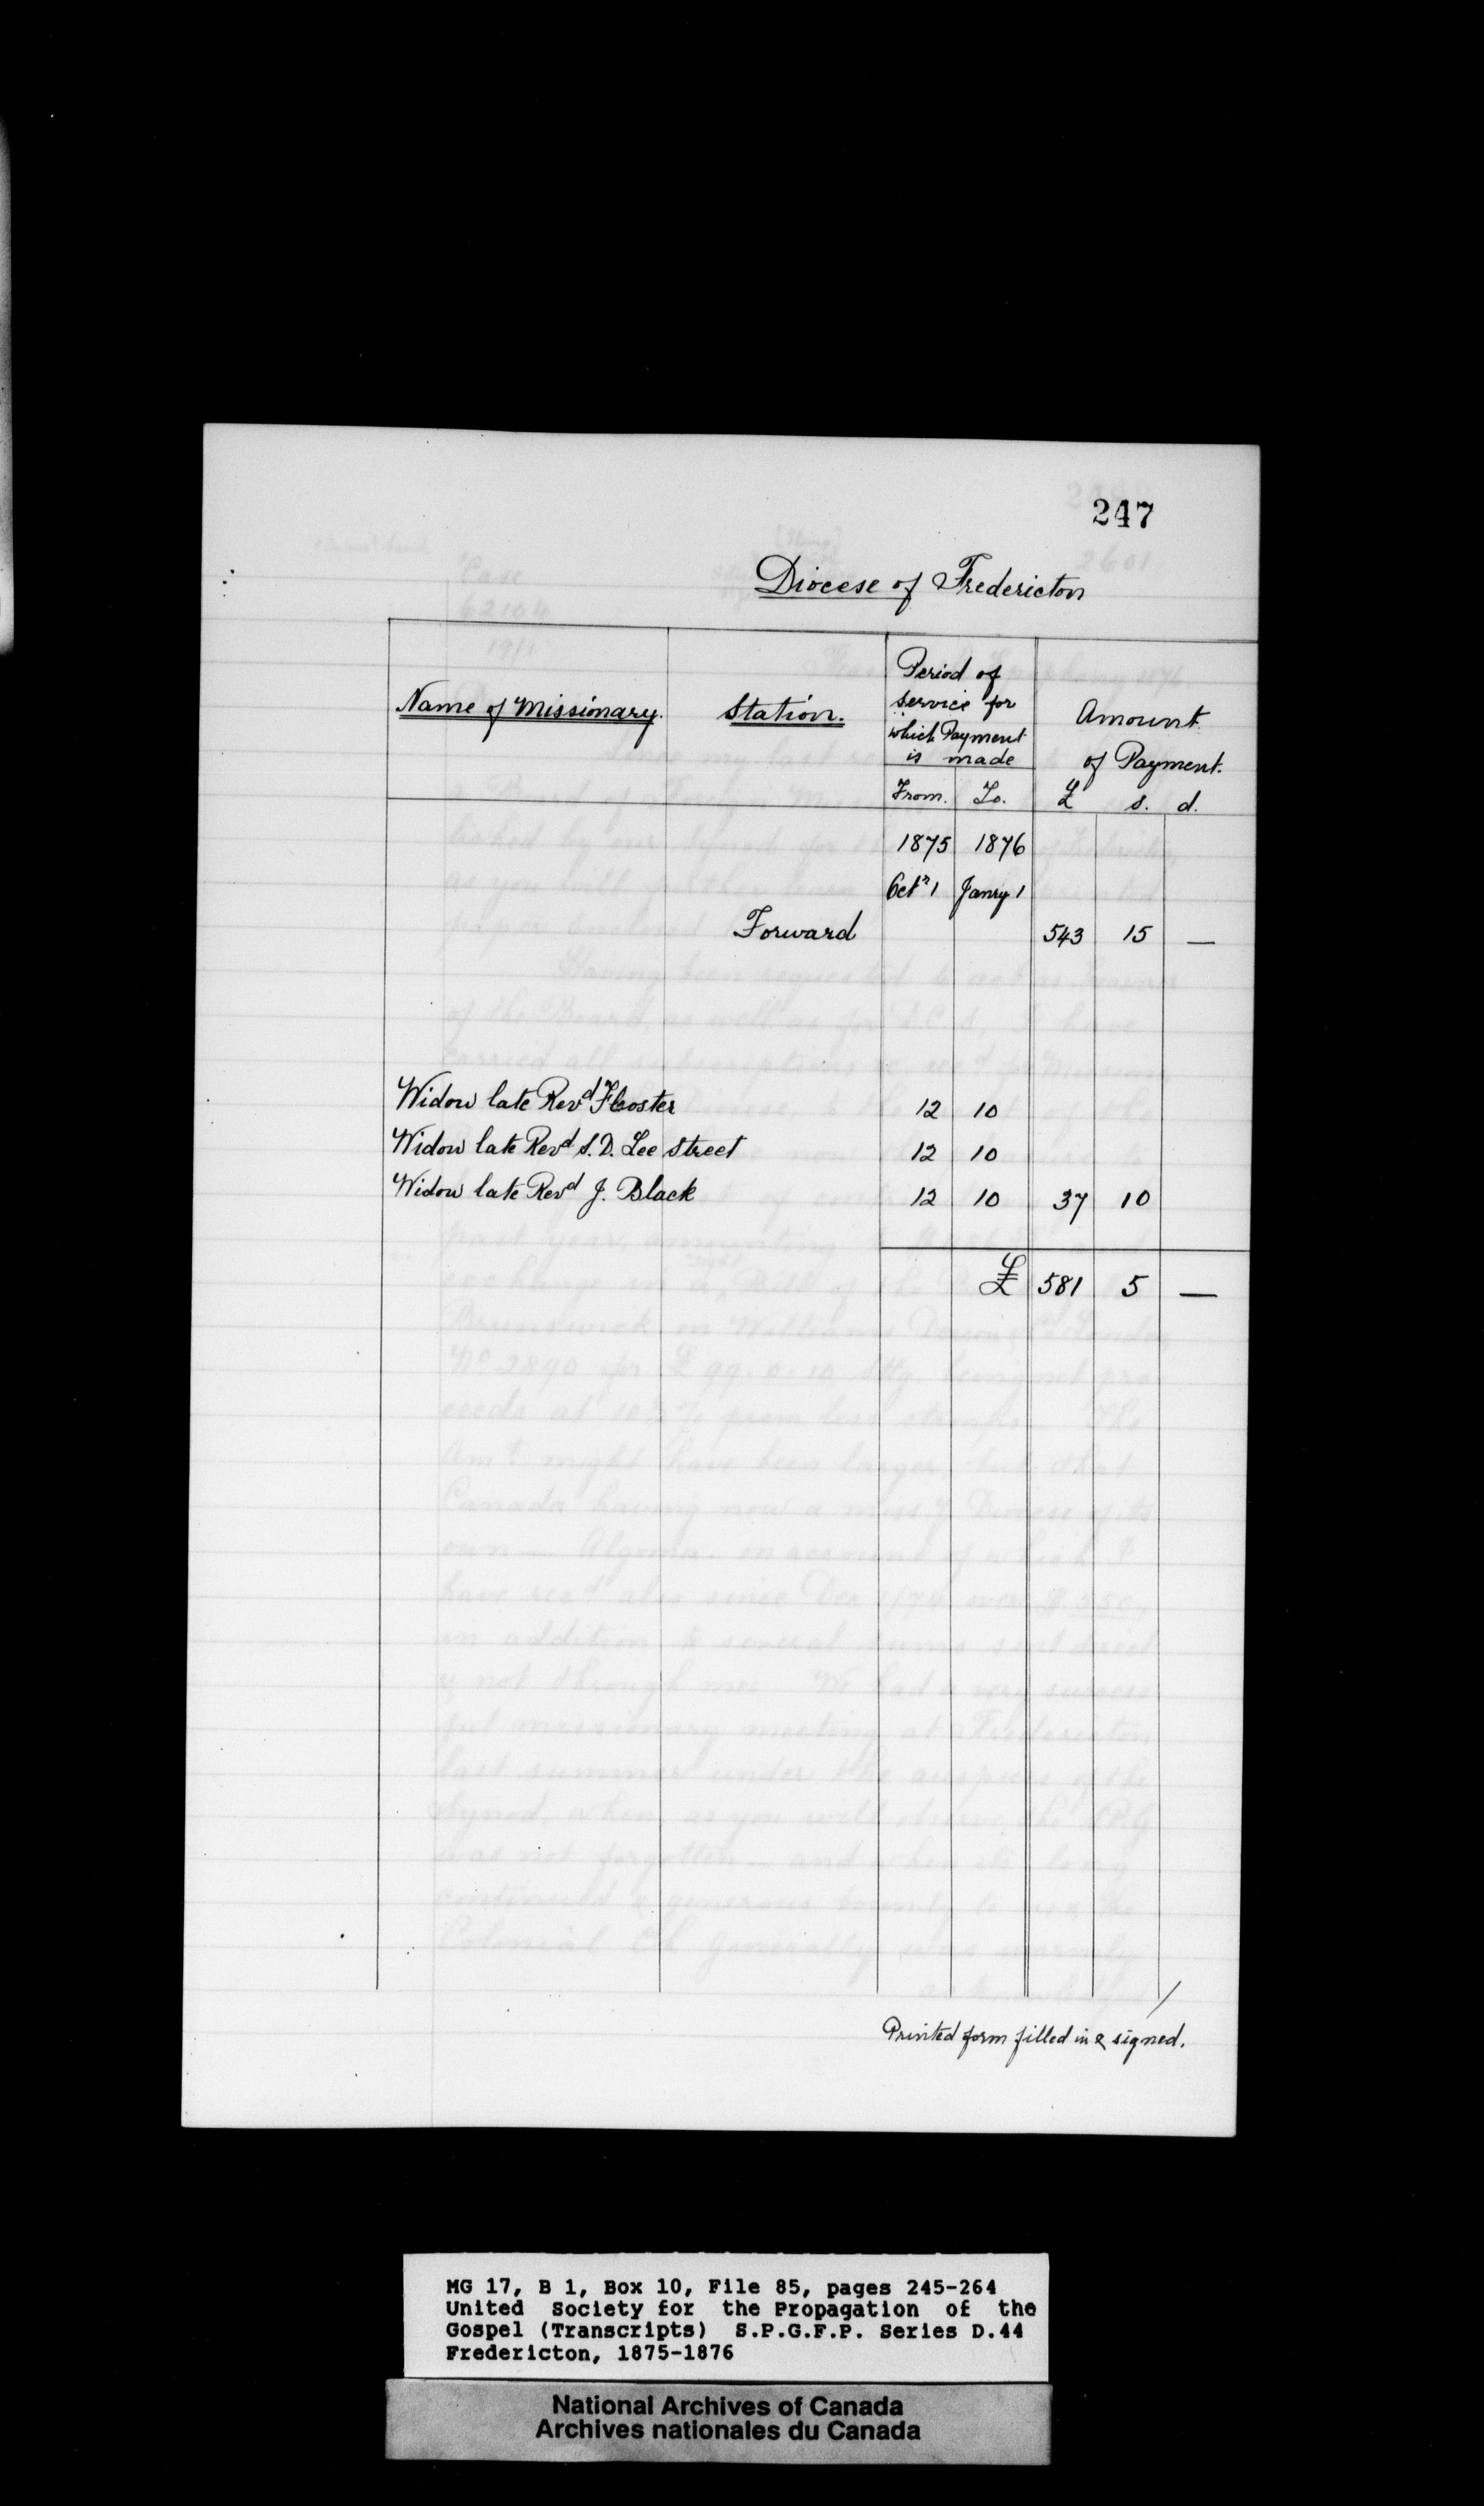 247
Diocese of Fredericton
Name of Missionary.
Station.
Period of
service for
which Payment
is made
Amount
of Payment.
From. To. £ s. d.
1875 1876
Octr 1 Janry 1
Forward 543 15 —
Widow late Revd Coster 12 10
Widow late Revd S. D. Lee Street 12 10
Widow late Revd J. Black 12 10 37 10
£ 581 5 —
Printed form filled in & signed.
MG 17, B 1, Box 10, File 85, pages 245-264
United Society for the Propagation of the
Gospel (Transcripts) S.P.G.F.P. Series D.44
Fredericton, 1875-1876
National Archives of Canada
Archives nationales du Canada